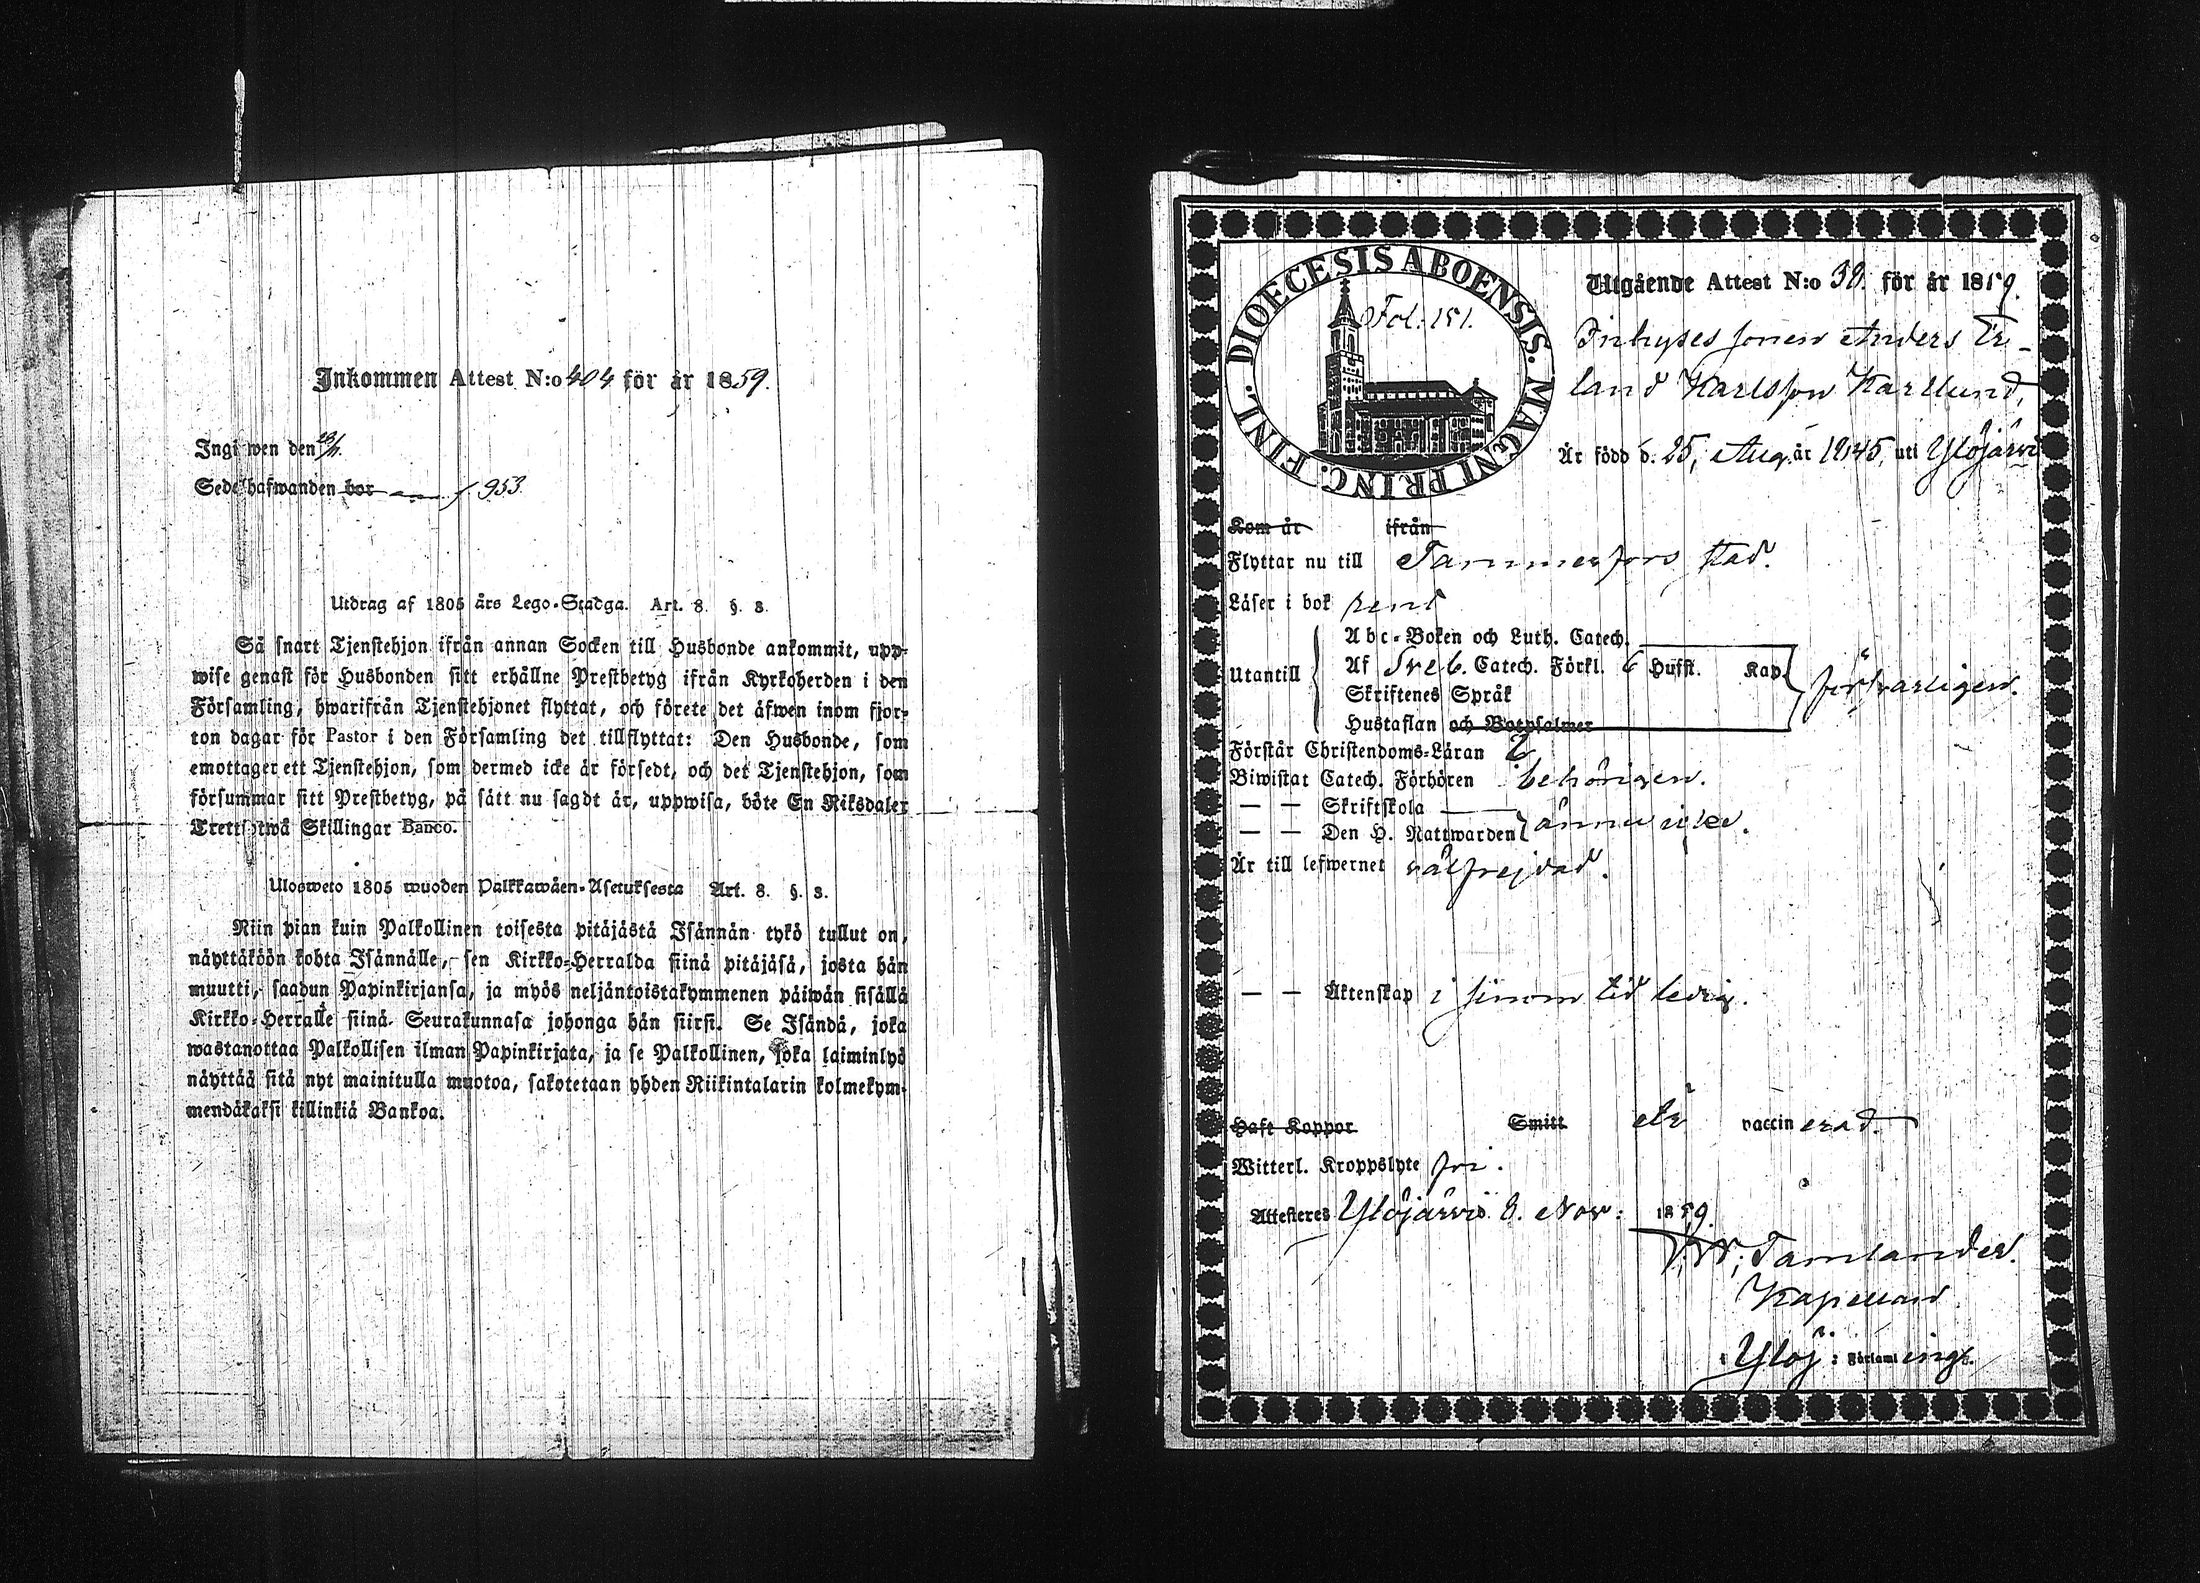 Inkommen Attest N:o 404 för år 1859.
Ingifwen den 23/11.
Sedelhafwanden bor f. 953.
Utdrag af 1805 års Lego-Stadga. Art. 8. §. 3.
Så snart Tjenstehjon ifrån annan Socken till Husbonde ankommit, upp-
wise genast för Husbonden sitt erhållne Prestbetyg ifrån Kyrkoherden i den
Församling, hwarifrån Tjenstehjonet flyttat, och förete det äfwen inom fjor-
ton dagar för Pastor i den Församling det tillflyttat: Den Husbonde, som
emottager ett Tjenstehjon, som dermed icke är försedt, och det Tjenstehjon, som
försummar sitt Prestbetyg, på sätt nu sagdt är, uppwisa, böte En Riksdaler
Trettiotwå Skillingar Banco.
Ulosweto 1805 wuoden Palkkawäen-Asetuksesta Art. 8. §. 3.
Niin pian kuin Palkollinen toisesta pitäjästä Isännän tykö tullut on,
näyttäköön kohta Isännälle, sen Kirkko-Herralda siinä pitäjäsä, josta hän
muutti, saadun Papinkirjansa, ja myös neljäntoistakymmenen päiwän sisällä
Kirkko-Herralle siinä Seurakunnasa johonga hän siirsi. Se Isändä, joka
wastanottaa Palkollisen ilman Papinkirjata, ja se Palkollinen, joka laiminlyö
näyttää sitä nyt mainitulla muotoa, sakotetaan yhden Riikintalarin kolmekym-
mendäkaksi killinkiä Bankoa.
DIOECESIS ABOENSIS. MAGNI PRINC. FINL.
Fol. 151.
Utgående Attest N:o 39. för år 1859.
Inhyses sonen Anders Er-
land Karlsson Karllund,
Är född d. 25, Aug. år 1845, uti Ylöjärvi
Kom år ifrån
Flyttar nu till Tammerfors stad.
Läser i bok rent
Utantill
Abc-Boken och Luth. Catech.
Af Sveb. Catech. Förkl. 6 Hufst. Kap.
Skriftenes Språk
Hustaflan och Botpsalmer
försvarligen.
Förstår Christendoms-Läran
Biwistat Catech. Förhören behörigen.
— — Skriftskola
— — Den H. Nattwarden ännu icke.
Är till lefwernet välfrejdad.
— — Äktenskap i sinom tid ledig.
Haft Koppor Smitt Är vaccinerad.
Witterl. Kroppslyte fri.
Attesteres Ylöjärvi 8. Nov: 1859.
Tamlander.
Kapellan
i Ylöj: Församlingh.